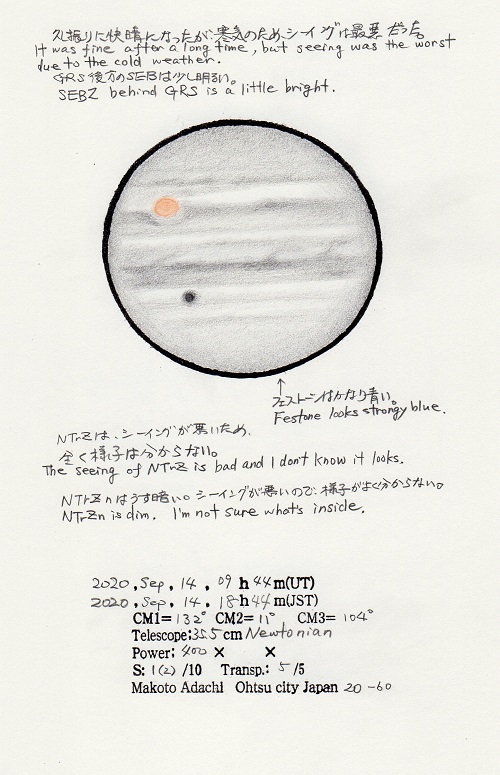 久振りに快晴になったが、寒気のため、シーイングは最悪だった。
It was fine after a long time, but seeing was the worst
due to the cold weather.
GRS後方のSEBは少し明るい。
SEBZ behind GRS is a little bright.
↑
フェストーンはかなり青い。
Festone looks strongy blue.
NTrZは、シーイングが悪いため、
全く様子は分からない。
The seeing of NTrZ is bad and I don't know it looks.
NTrZnはうす暗い。シーイングが悪いので、様子がよく分からない。
NTrZn is dim. I'm not sure what's inside.
2020, Sep, 14, 09 h 44 m(UT)
2020, Sep, 14, 18 h 44 m(JST)
CM1= 132° CM2= 11° CM3= 104°
Telescope: 35.5 cm Newtonian
Power: 400 × ×
S: 1(2) /10 Transp.: 5 /5
Makoto Adachi Ohtsu city Japan 20-60